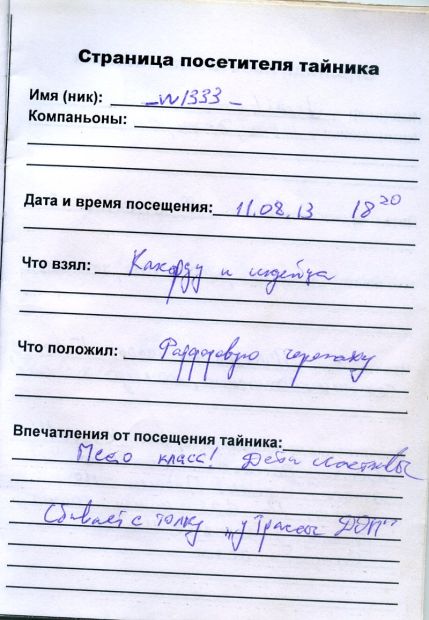 Страница посетителя тайника
Имя (ник): _W1333_
Компаньоны:
Дата и время посещения: 11.08.13 18 20
Что взял: Какарду и индейца
Что положил: Фарфоровую черепаху
Впечатления от посещения тайника:
Место класс! Дети счастливы
Сбивает с толку "у трассы ДОП"